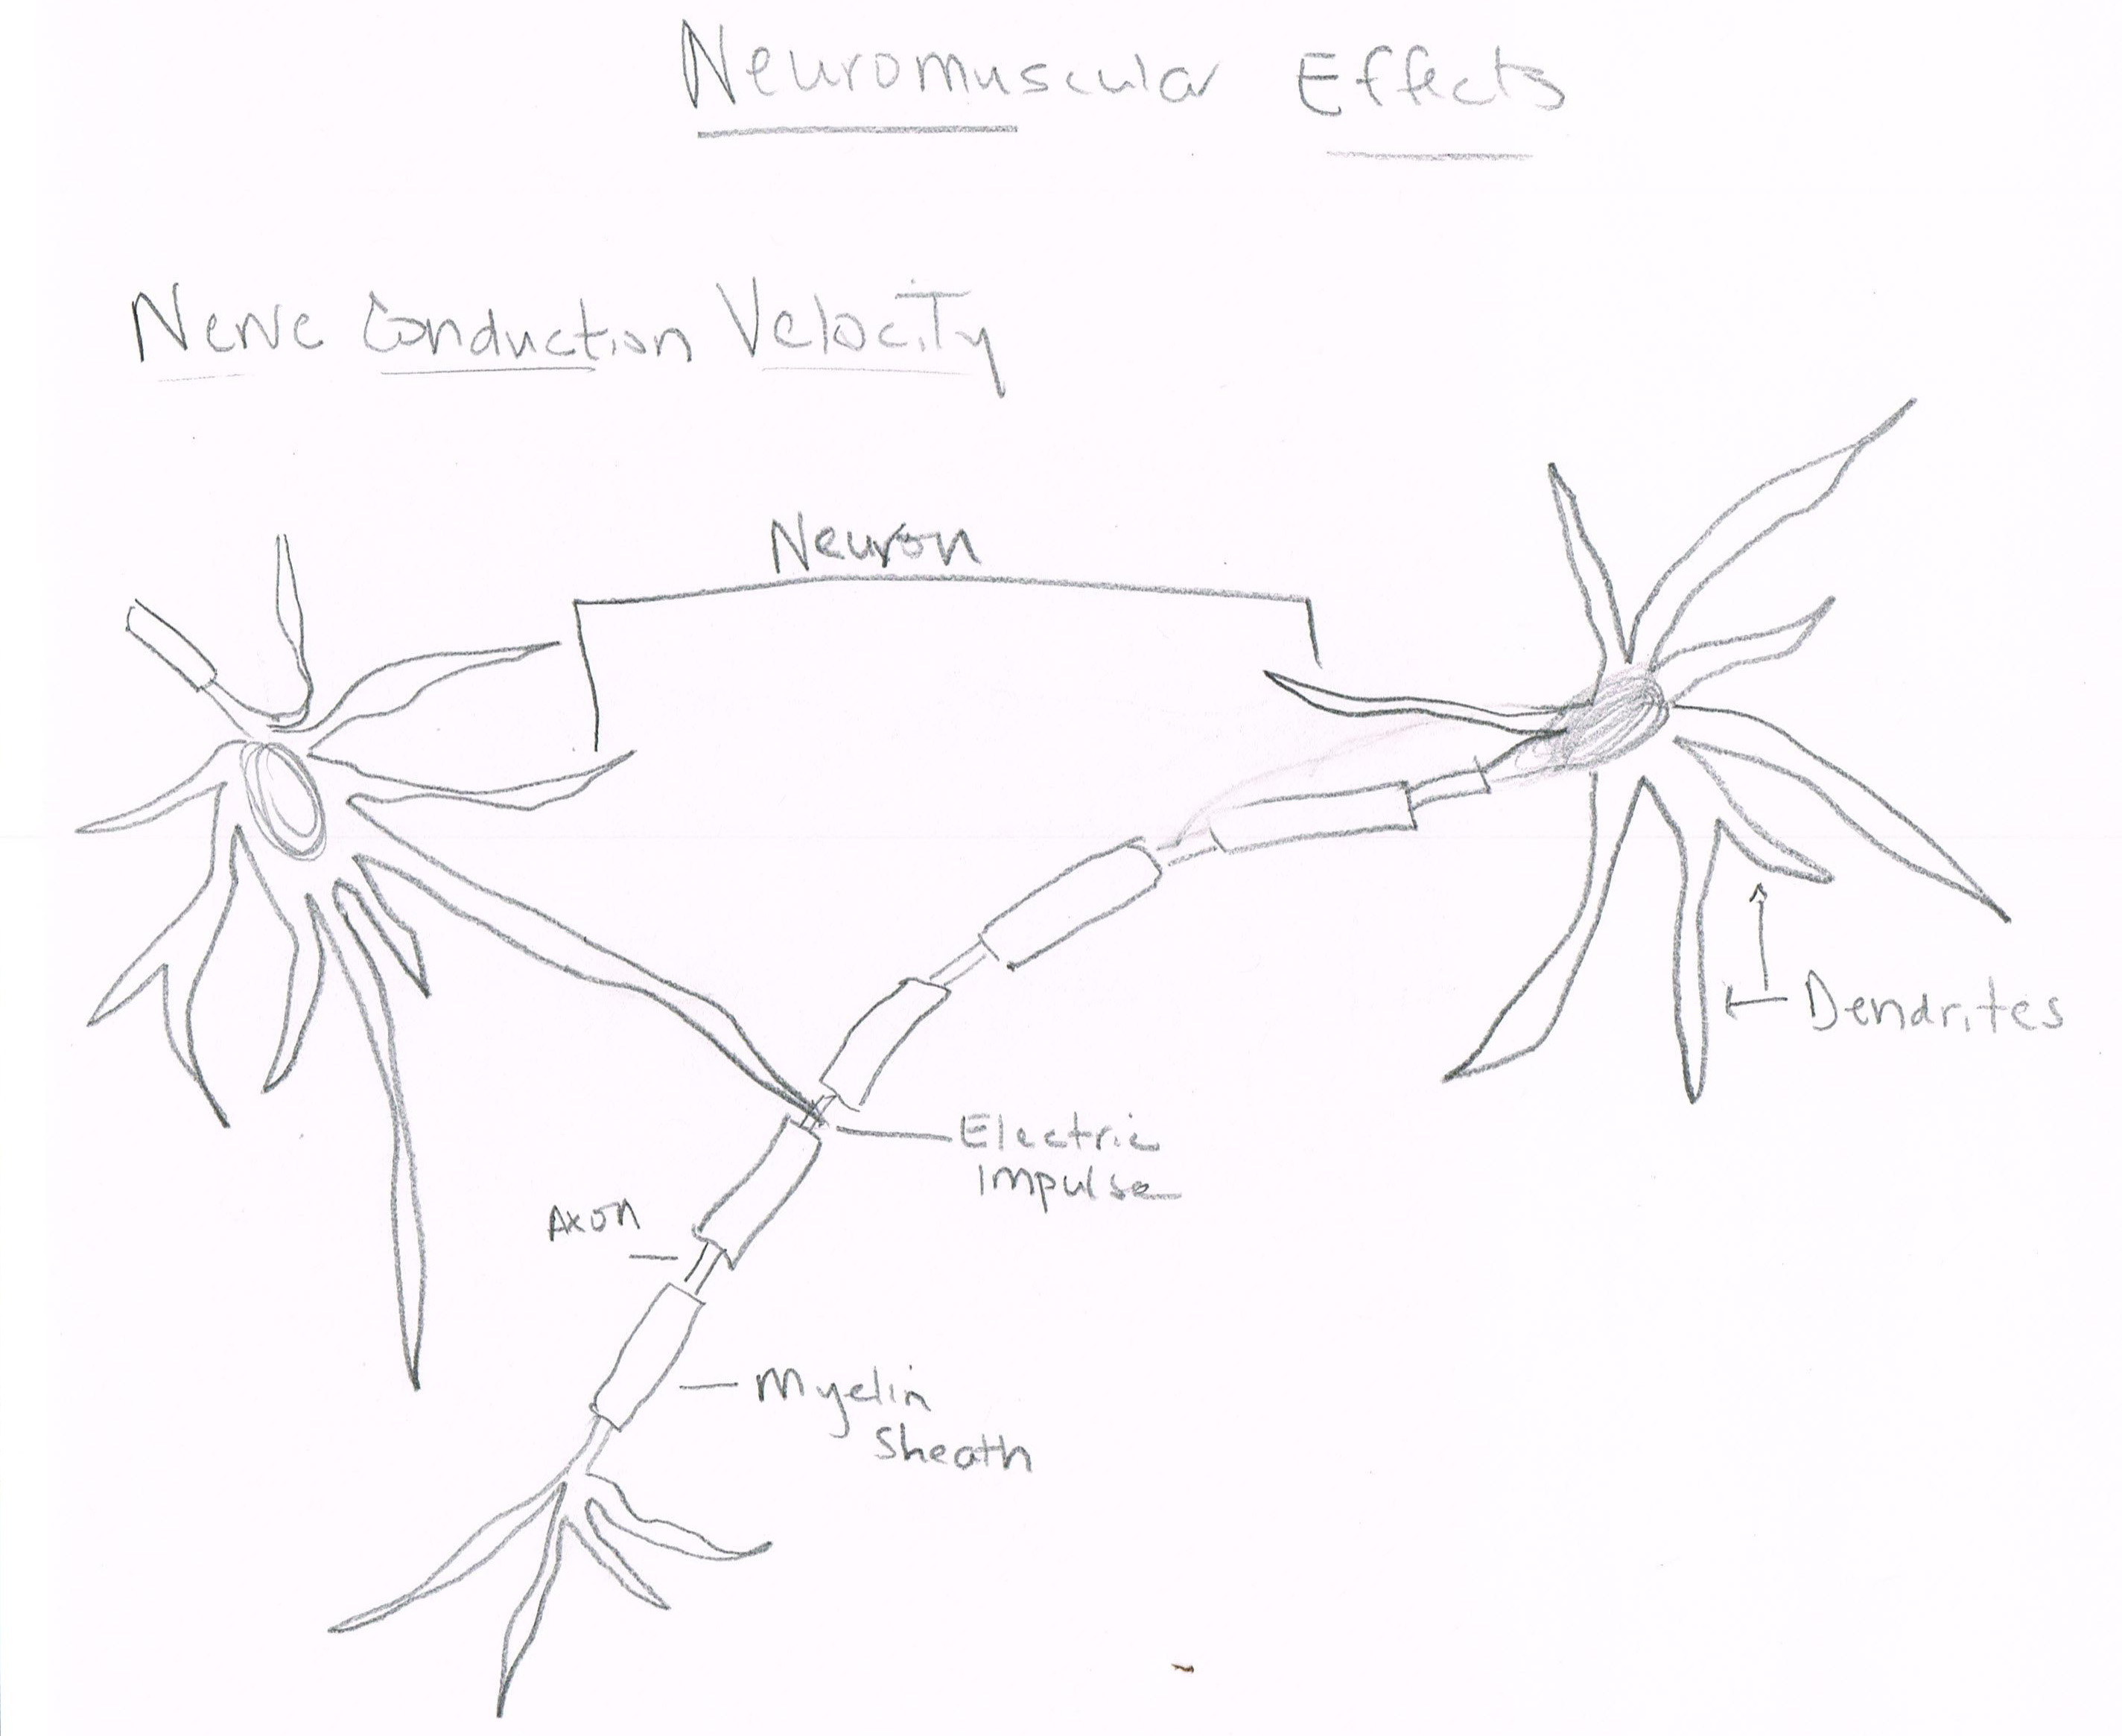 Neuromuscular Effects
Nerve Conduction Velocity
Neuron
Dendrites
Electric
Impulse
Axon
Myelin
Sheath